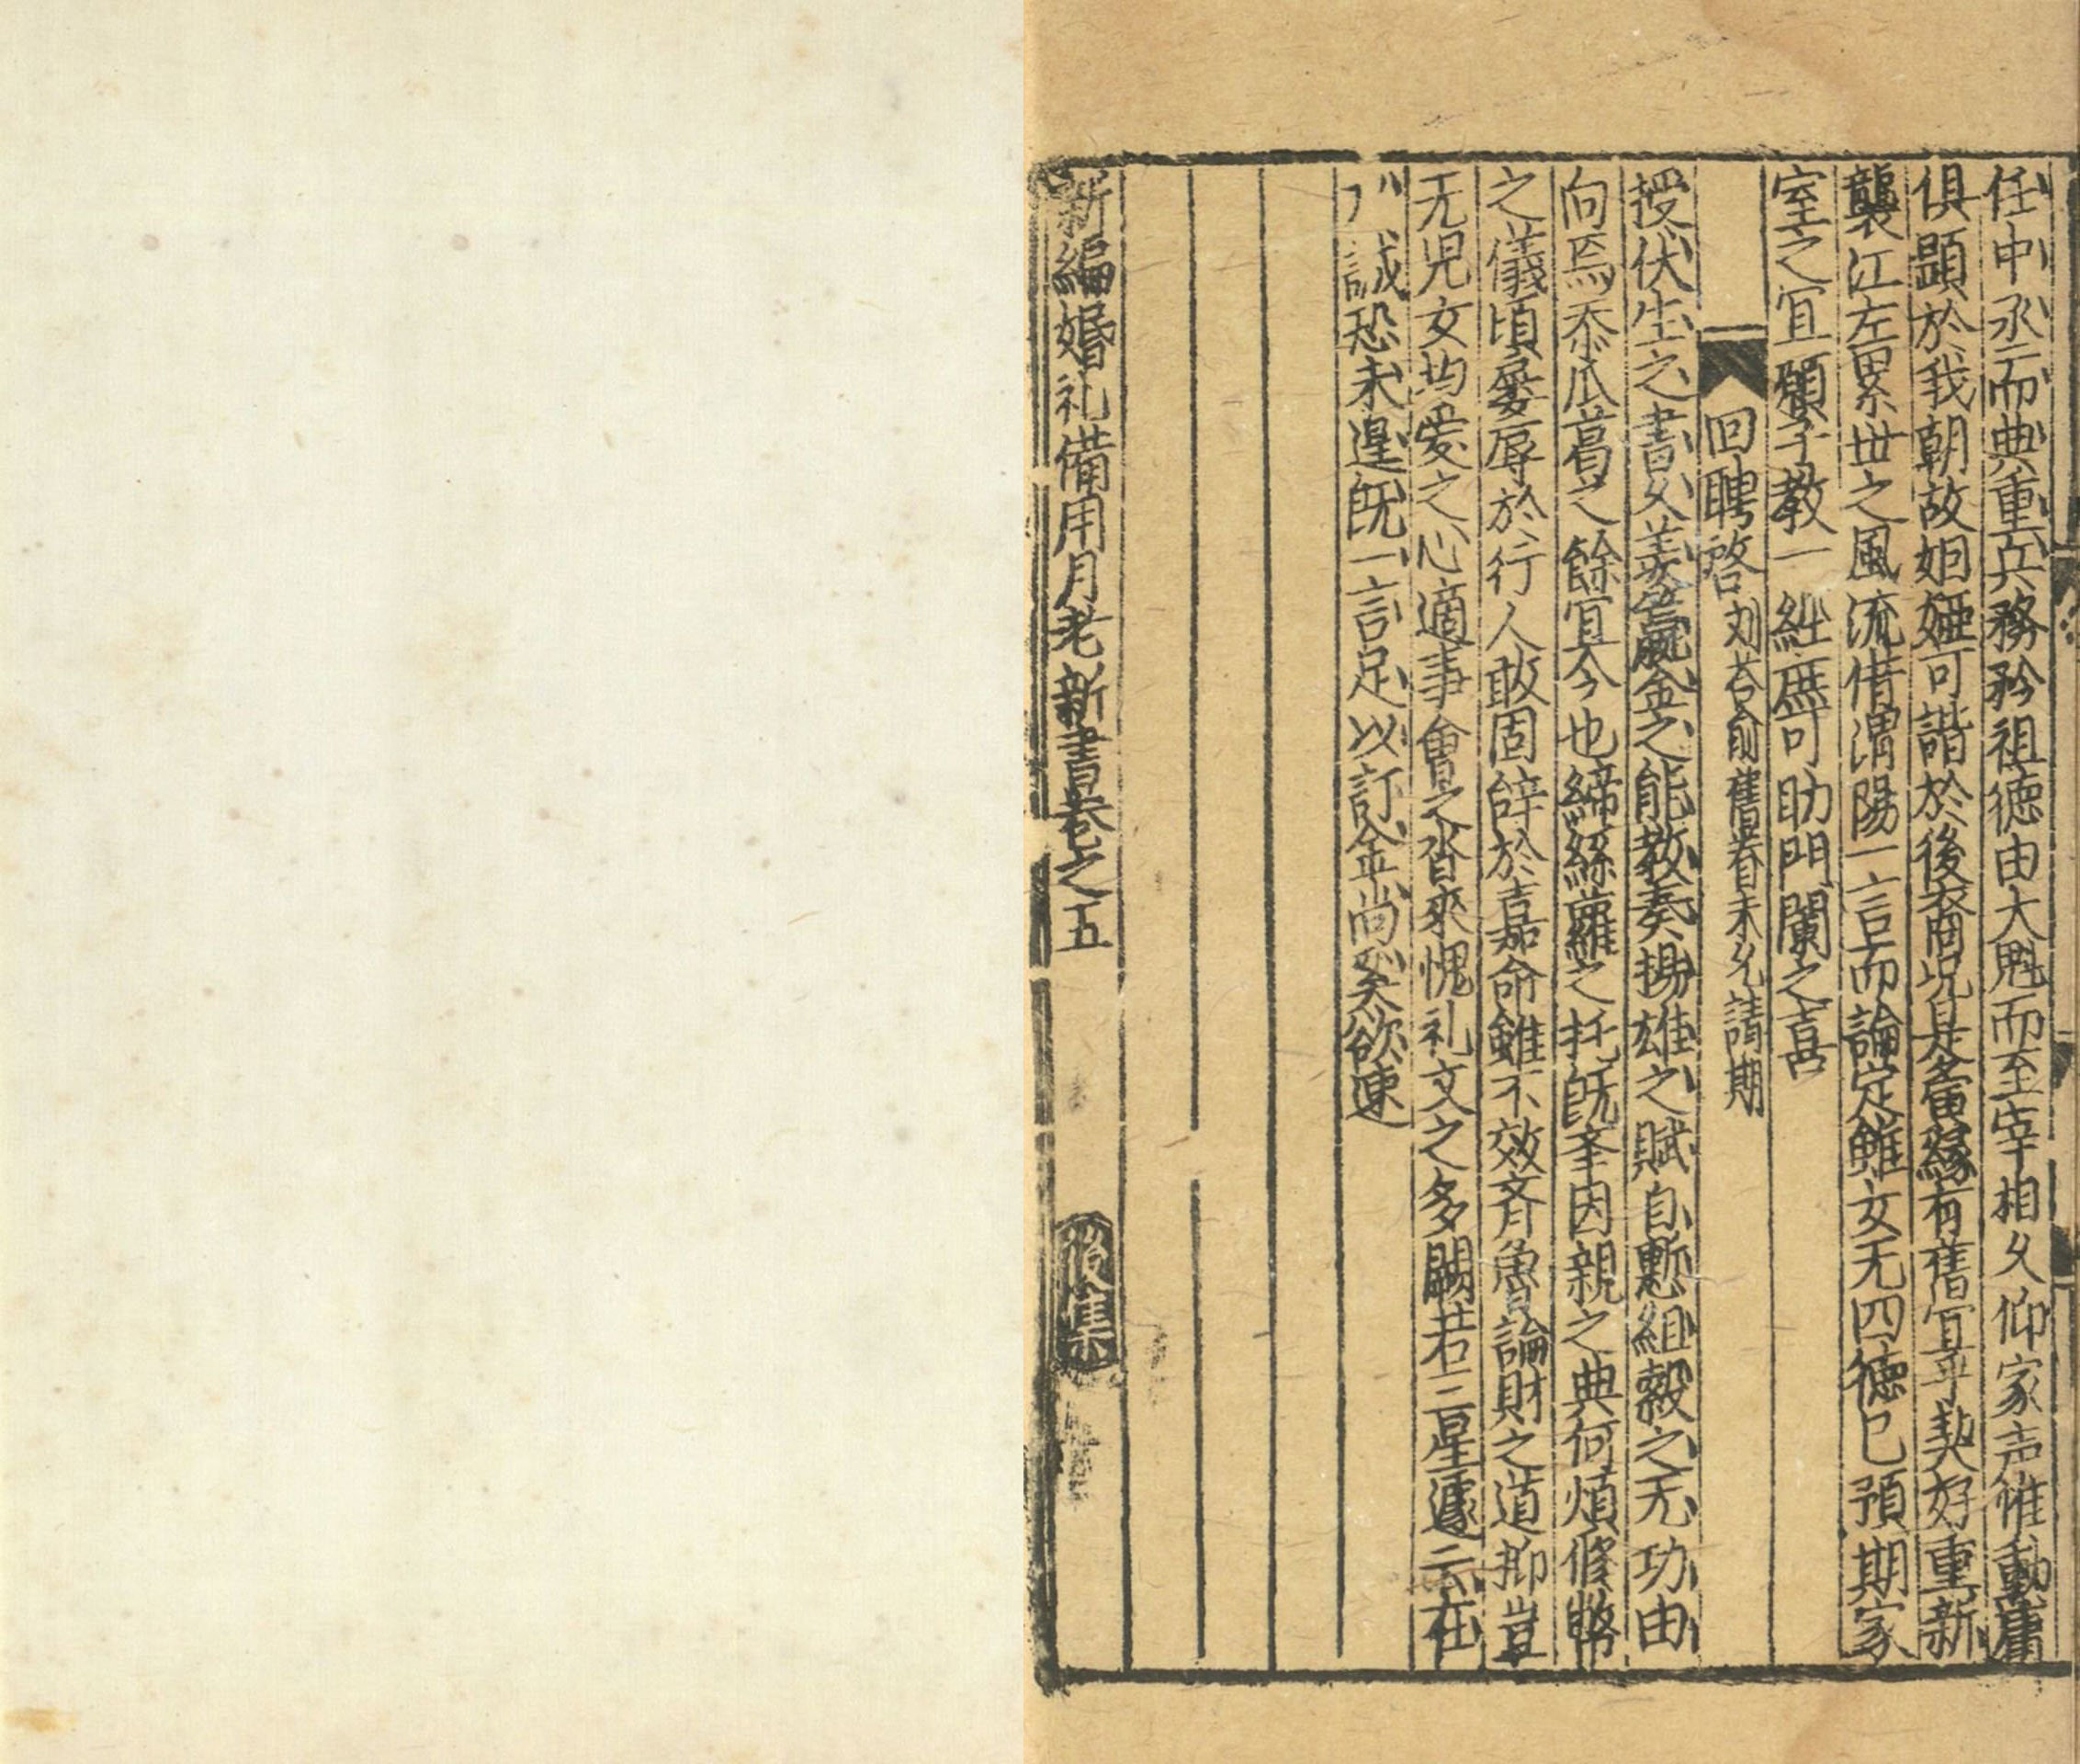 任中丞而典重兵務矜祖德由大魁而至宰相久仰家声惟動庸
俱顕於我朝故姻婭可諧於後裔况是夤緣有舊冝乎契好重新
襲江左累世之風流借渭陽一言而論定雖女无四德已預期家
室之冝願子教一経庶可助門闌之喜
回聘啓 刘荅俞舊眷未允請期
授伏生之書久羡籯金之能教奏揚雄之賦自慙組縠之无功由
向焉忝瓜葛之餘冝今也締絲蘿之托既峯因親之典何煩修幣
之儀頃屡辱於行人敢固辞於嘉命雖不效齐魯論財之道抑豈
无児女均爱之心適事會之沓來愧礼文之多闕若三星遽云在
戸誠恐未遑既一言足以訂金尚矣欲速
新編婚礼備用月老新書巻之五 後集